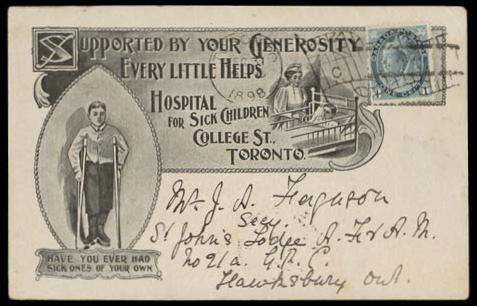 SUPPORTED BY YOUR GENEROSITY
EVERY LITTLE HELPS
HOSPITAL
FOR SICK CHILDREN
COLLEGE ST.,
TORONTO.
1898
HAVE YOU EVER HAD
SICK ONES OF YOUR OWN
Mr. J. A. Ferguson
Secy.
St John's Lodge A. F & A. M.
No 21a. G. R. C.
Hawksbury Ont.